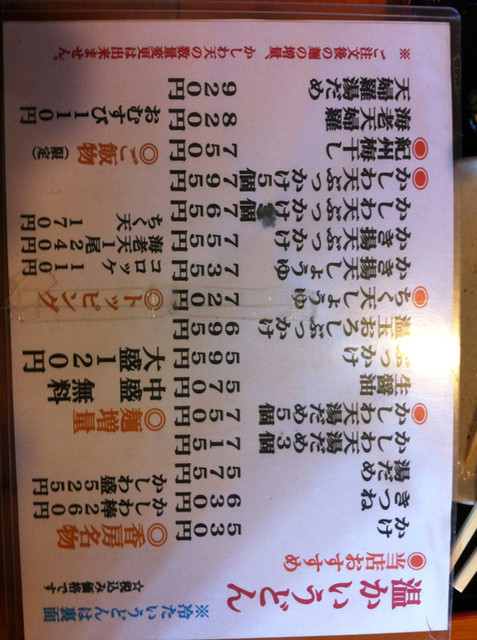 温かいうどん
※冷たいうどんは裏面
☆税込み価格です
◉当店おすすめ
かけ 530円
きつね 630円
湯だめ 575円
かしわ天湯だめ3個 715円
◉かしわ天湯だめ5個 750円
生醤油 570円
ぶっかけ 595円
温玉おろしぶっかけ 695円
◉ちく天しょうゆ 720円
かき揚天しょうゆ 735円
かき揚天ぶっかけ 755円
かしわ天ぶっかけ 個 765円
◉かしわ天ぶっかけ5個 795円
◉紀州梅干し 750円
海老天婦羅 820円
天婦羅湯だめ 920円
◎香房名物
かしわ棒260円
かしわ盛525円
◎麺増量
中盛 無料
大盛 120円
◎トッピング
コロッケ 110円
海老天1尾240円
ちく天 170円
◎ご飯物(限定)
おむすび110円
※ご注文後の麺の増量、かしわ天の数量変更は出来ません。